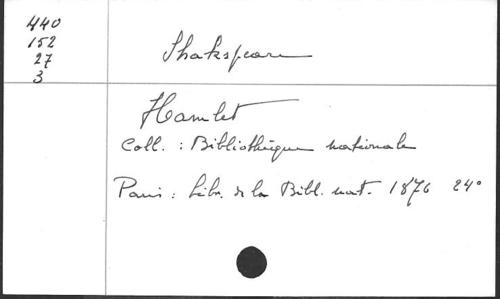 440
152
27
3
Shakspeare
Hamlet
Coll. : Bibliothèque nationale
Paris : Libr. de la Bibl. nat. 1876 24°